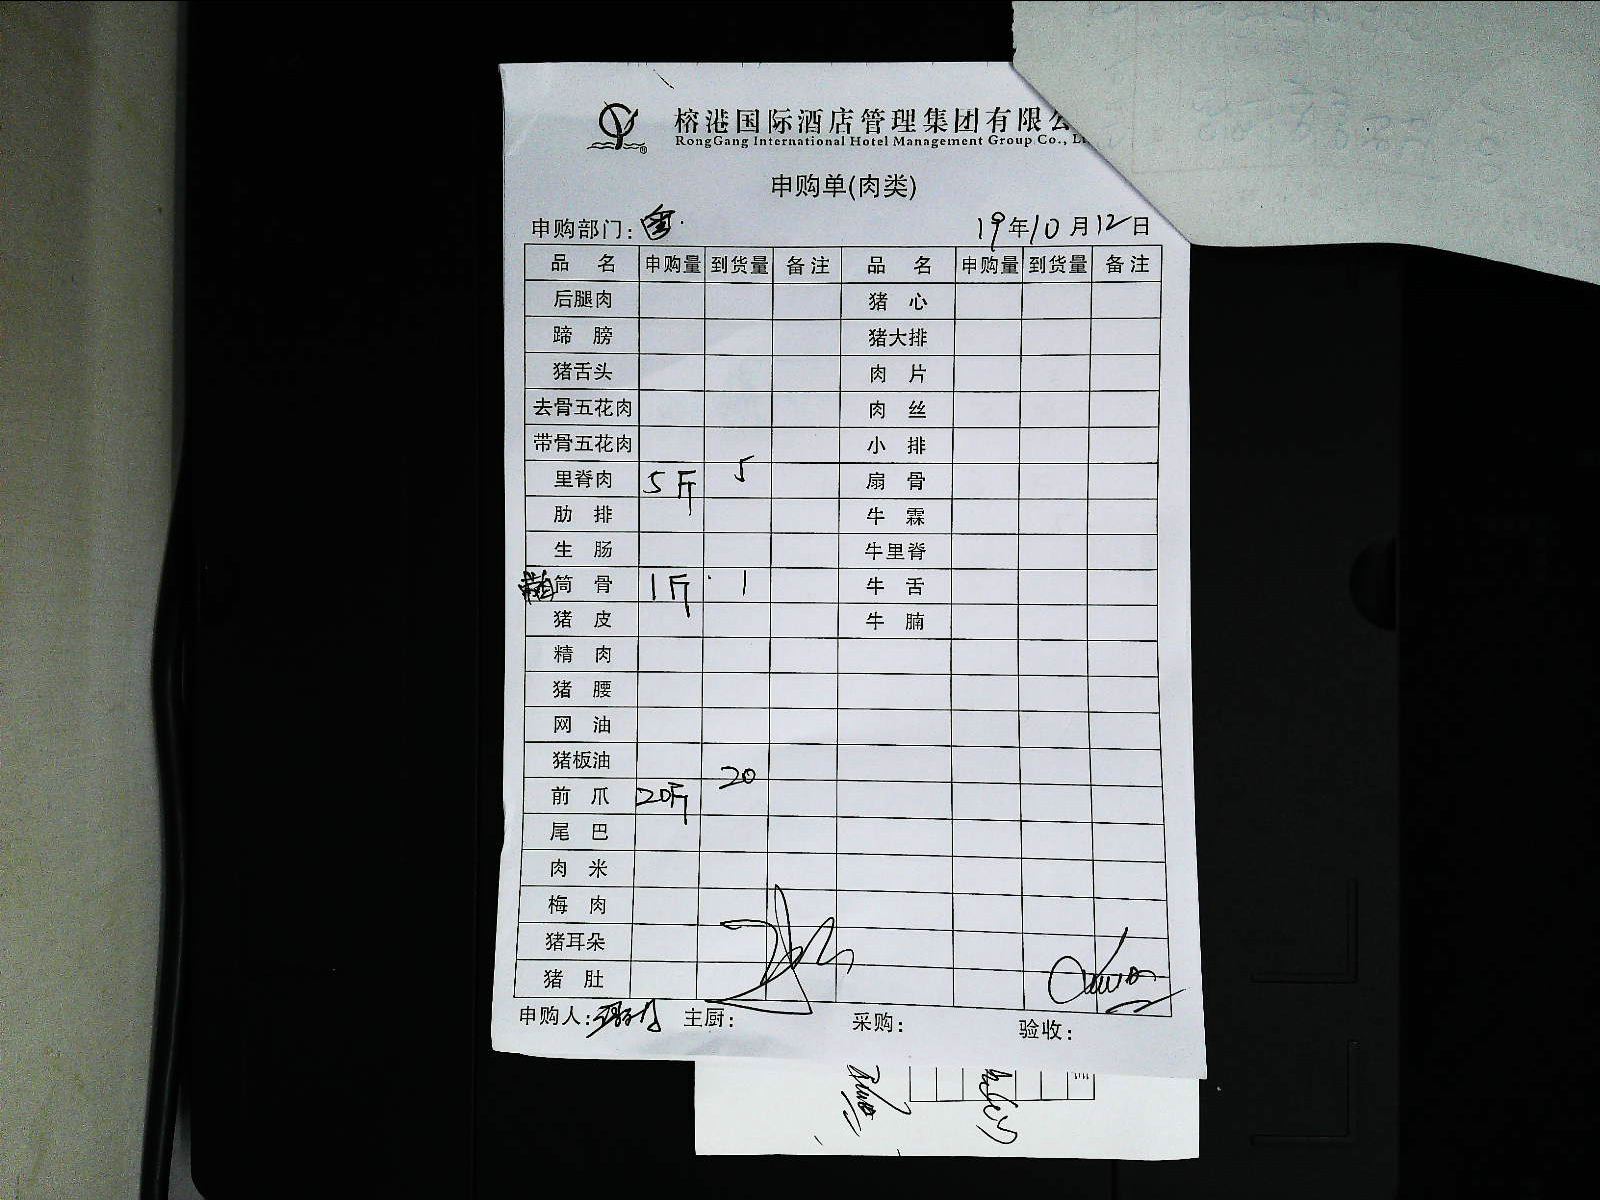 榕港国际酒店管理集团有限公
RongGang International Hotel Management Group Co., L
申购单(肉类)
申购部门: 19年10月12日
品 名 申购量 到货量 备注 品 名 申购量 到货量 备注
后腿肉 猪 心
蹄 膀 猪大排
猪舌头 肉 片
去骨五花肉 肉 丝
带骨五花肉 小 排
里脊肉 5斤 5 扇 骨
肋 排 牛 霖
生 肠 牛里脊
筒 骨 1斤 1 牛 舌
猪 皮 牛 腩
精 肉
猪 腰
网 油
猪板油
前 爪 20斤 20
尾 巴
肉 米
梅 肉
猪耳朵
猪 肚
申购人: 主厨: 采购: 验收: